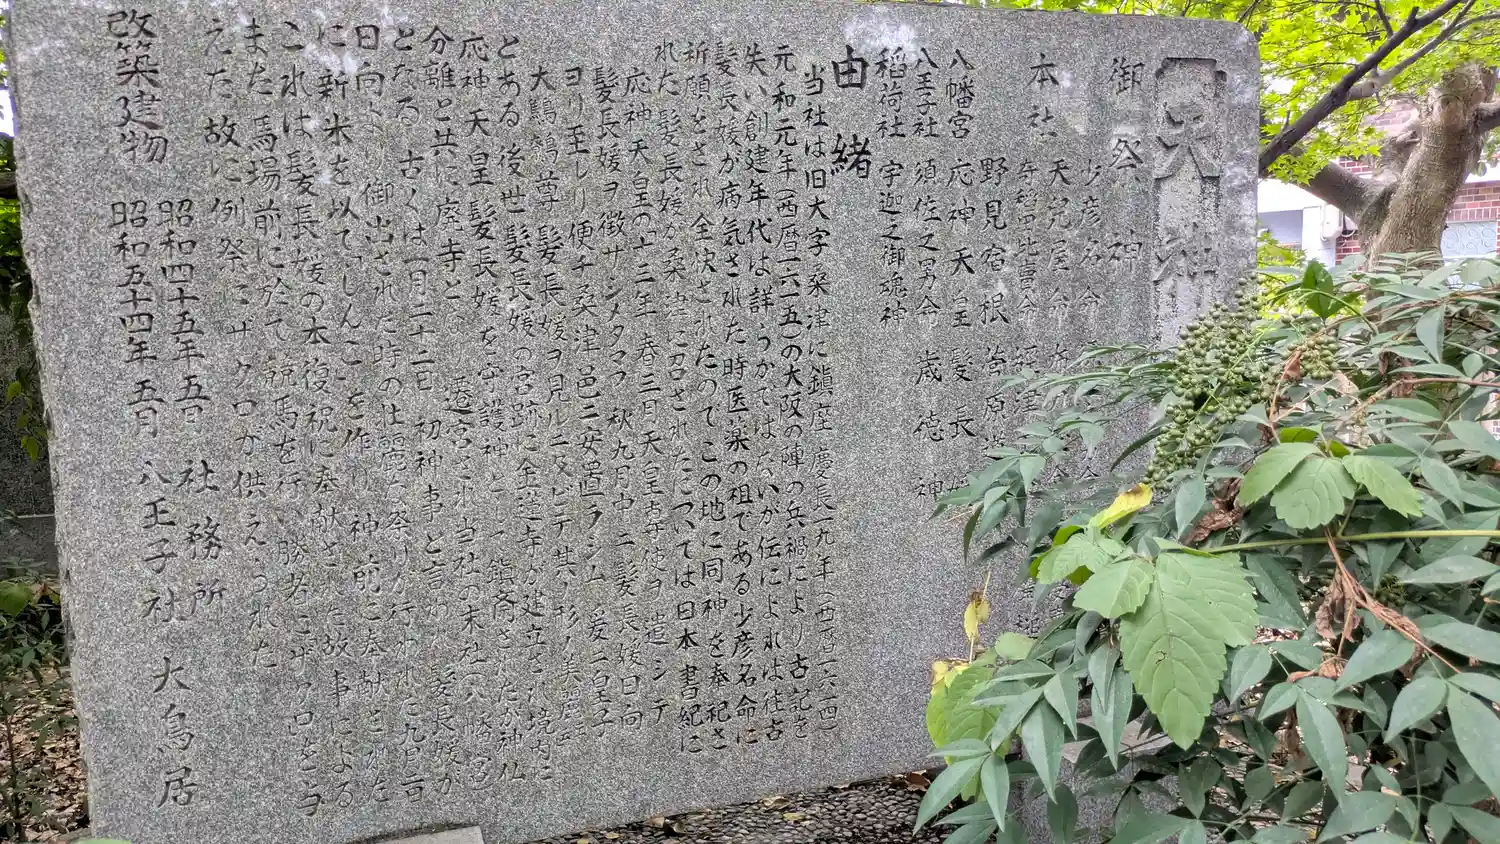 天神
御祭神
本社 少彦名命
天児屋命
奈留比売命
野見宿根 菅原道
八幡宮 応神天皇 髪長
八王子社 須佐之男命 歳徳神
稲荷社 宇迦之御魂神
由緒
当社は旧大字桑津に鎮座慶長一九年(西暦一六一四)
元和元年(西暦一六一五)の大阪の陣の兵禍により古記を
失い創建年代は詳らかではないが伝によれば往古
髪長媛が病気された時医薬の祖である少彦名命に
祈願をされ全快されたのでこの地に同神を奉祀さ
れた髪長媛が桑津に召されたについては日本書紀に
応神天皇の十三年春三月天皇専使ヲ遣シテ
髪長媛ヲ徴サシメタマフ秋九月中ニ髪長媛日向
ヨリ至レリ便チ桑津邑ニ安置ラシム爰ニ皇子
大鷦鷯尊髪長媛ヲ見ルニ及ビテ其ノ形ノ美麗ニ
とある後世髪長媛の宮跡に金蓮寺が建立され境内に
応神天皇髪長媛を守護神として鎮斎されたが神仏
分離と共に廃寺となり遷宮され当社の末社(八幡宮)
となる 古くは一月二十二日 初神事と言われ髪長媛が
日向より御出された時の壮麗な祭りが行われた九月一日
に新米を以てしんこを作り神前に奉献された
これは髪長媛の本復祝に奉献された故事による
また馬場前に於て競馬を行い勝者にザクロを与
えた故に例祭にザクロが供えられた
改築建物 昭和四十五年五月 社務所
昭和五十四年五月 八王子社 大鳥居